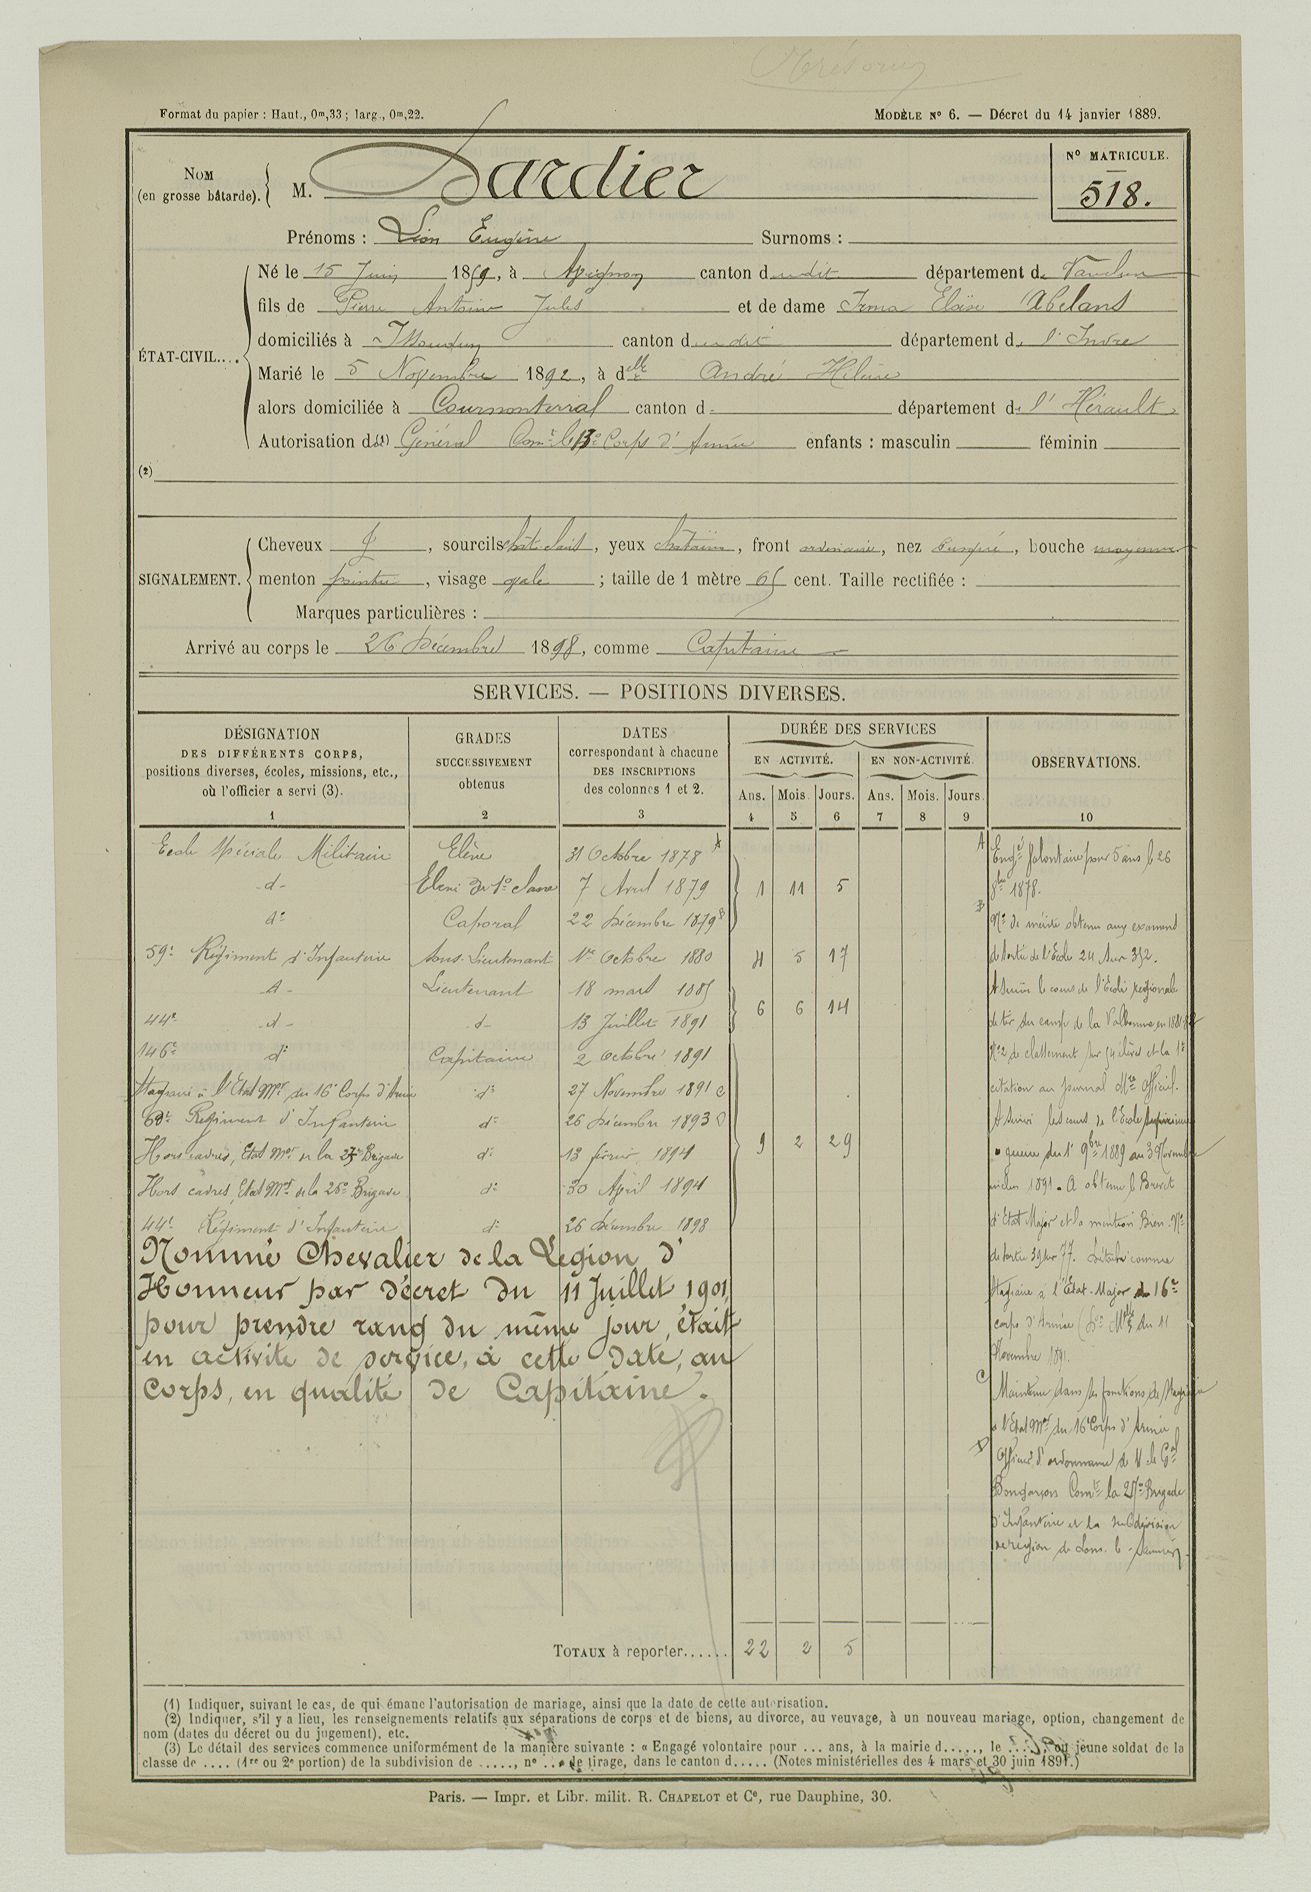 Format du papier : Haut., 0m,33 ; larg., 0m,22.
MODÈLE No 6. — Décret du 14 janvier 1889.
NOM
(en grosse bâtarde).
M. Dardier
No MATRICULE.
518.
Prénoms : Léon Eugène Surnoms :
Né le 15 Juin 1859, à Avignon canton dudit département de Vaucluse
fils de Pierre Antoine Jules et de dame Irma Eloïse Abelans
ÉTAT-CIVIL....
domiciliés à Issoudun canton dudit département de l'Indre
Marié le 5 Novembre 1892, à delle André Hélène
alors domiciliée à Cournonterral canton d département de l'Hérault
Autorisation du (1) Général Comt le 13e Corps d'Armée enfants : masculin féminin
(2)
SIGNALEMENT.
Cheveux , sourcils chât. clairs, yeux châtains, front ordinaire, nez busqué, bouche moyenne
menton pointu, visage ovale ; taille de 1 mètre 65 cent. Taille rectifiée :
Marques particulières :
Arrivé au corps le 26 Décembre 1898, comme Capitaine
SERVICES. — POSITIONS DIVERSES.
DÉSIGNATION
DES DIFFÉRENTS CORPS,
positions diverses, écoles, missions, etc.,
où l'officier a servi (3).
1
GRADES
SUCCESSIVEMENT
obtenus
2
DATES
correspondant à chacune
DES INSCRIPTIONS
des colonnes 1 et 2.
3
DURÉE DES SERVICES
EN ACTIVITÉ. EN NON-ACTIVITÉ.
Ans. Mois. Jours. Ans. Mois. Jours.
4 5 6 7 8 9
OBSERVATIONS.
10
Ecole Spéciale Militaire Elève 31 Octobre 1878 A
-d- Elève de 1e classe 7 Avril 1879 1 11 5
do Caporal 22 Décembre 1879 B
59e Régiment d'Infanterie Sous-Lieutenant 1er Octobre 1880 4 5 17
-d- Lieutenant 18 mars 1885
6 6 14
44e -d- -d- 13 Juillet 1891
146e do Capitaine 2 Octobre 1891
Stagiaire à l'Etat Mor du 16e Corps d'Armée do 27 Novembre 1891 C
Régiment d'Infanterie do 26 Décembre 1893 D
9 2 29
Hors cadres, Etat Mor de la Brigade do 13 février 1894
Hors cadres, Etat Mor de la 26e Brigade do 30 April 1894
44e Régiment d'Infanterie do 26 Décembre 1898
Nommé Chevalier de la Légion d'
Honneur par décret du 11 Juillet 1901,
pour prendre rang du même jour, était
en activité de service, à cette date, au
corps, en qualité de Capitaine.
A
Engé Volontaire pour 5 ans le 26
8bre 1878.
B
No de mérite obtenu aux examens
de sortie de l'Ecole 24 sur 352.
A suivi le cours de l'Ecole régionale
de tir du camp de la Valbonne en
No 2 de classement sur 54 élèves et la 1e
citation au journal Mre Officiel.
A suivi les cours de l'Ecole Supérieure
de guerre du 1er 9bre 1889 au 3 Novembre
1891. A obtenu le Brevet
d'Etat Major et la mention Bien. No
de sortie 39 sur 77. Détaché comme
stagiaire à l'Etat-Major du 16e
corps d'Armée du 11
Novembre 1891.
C
Maintenu dans les fonctions de Stagiaire
à l'Etat Mor du 16e Corps d'Armée
D
Officier d'ordonnance de M. le Gal
Bongarçon Comt la Brigade
d'Infanterie et la subdivision
de région de Lons-le-Saunier.
TOTAUX à reporter...... 22 2 5
(1) Indiquer, suivant le cas, de qui émane l'autorisation de mariage, ainsi que la date de cette autorisation.
(2) Indiquer, s'il y a lieu, les renseignements relatifs aux séparations de corps et de biens, au divorce, au veuvage, à un nouveau mariage, option, changement de
nom (dates du décret ou du jugement), etc.
(3) Le détail des services commence uniformément de la manière suivante : « Engagé volontaire pour ... ans, à la mairie d....., le ...., ou jeune soldat de la
classe de .... (1re ou 2e portion) de la subdivision de ....., no ... de tirage, dans le canton d..... (Notes ministérielles des 4 mars et 30 juin 1891.)
Paris. — Impr. et Libr. milit. R. CHAPELOT et Ce, rue Dauphine, 30.